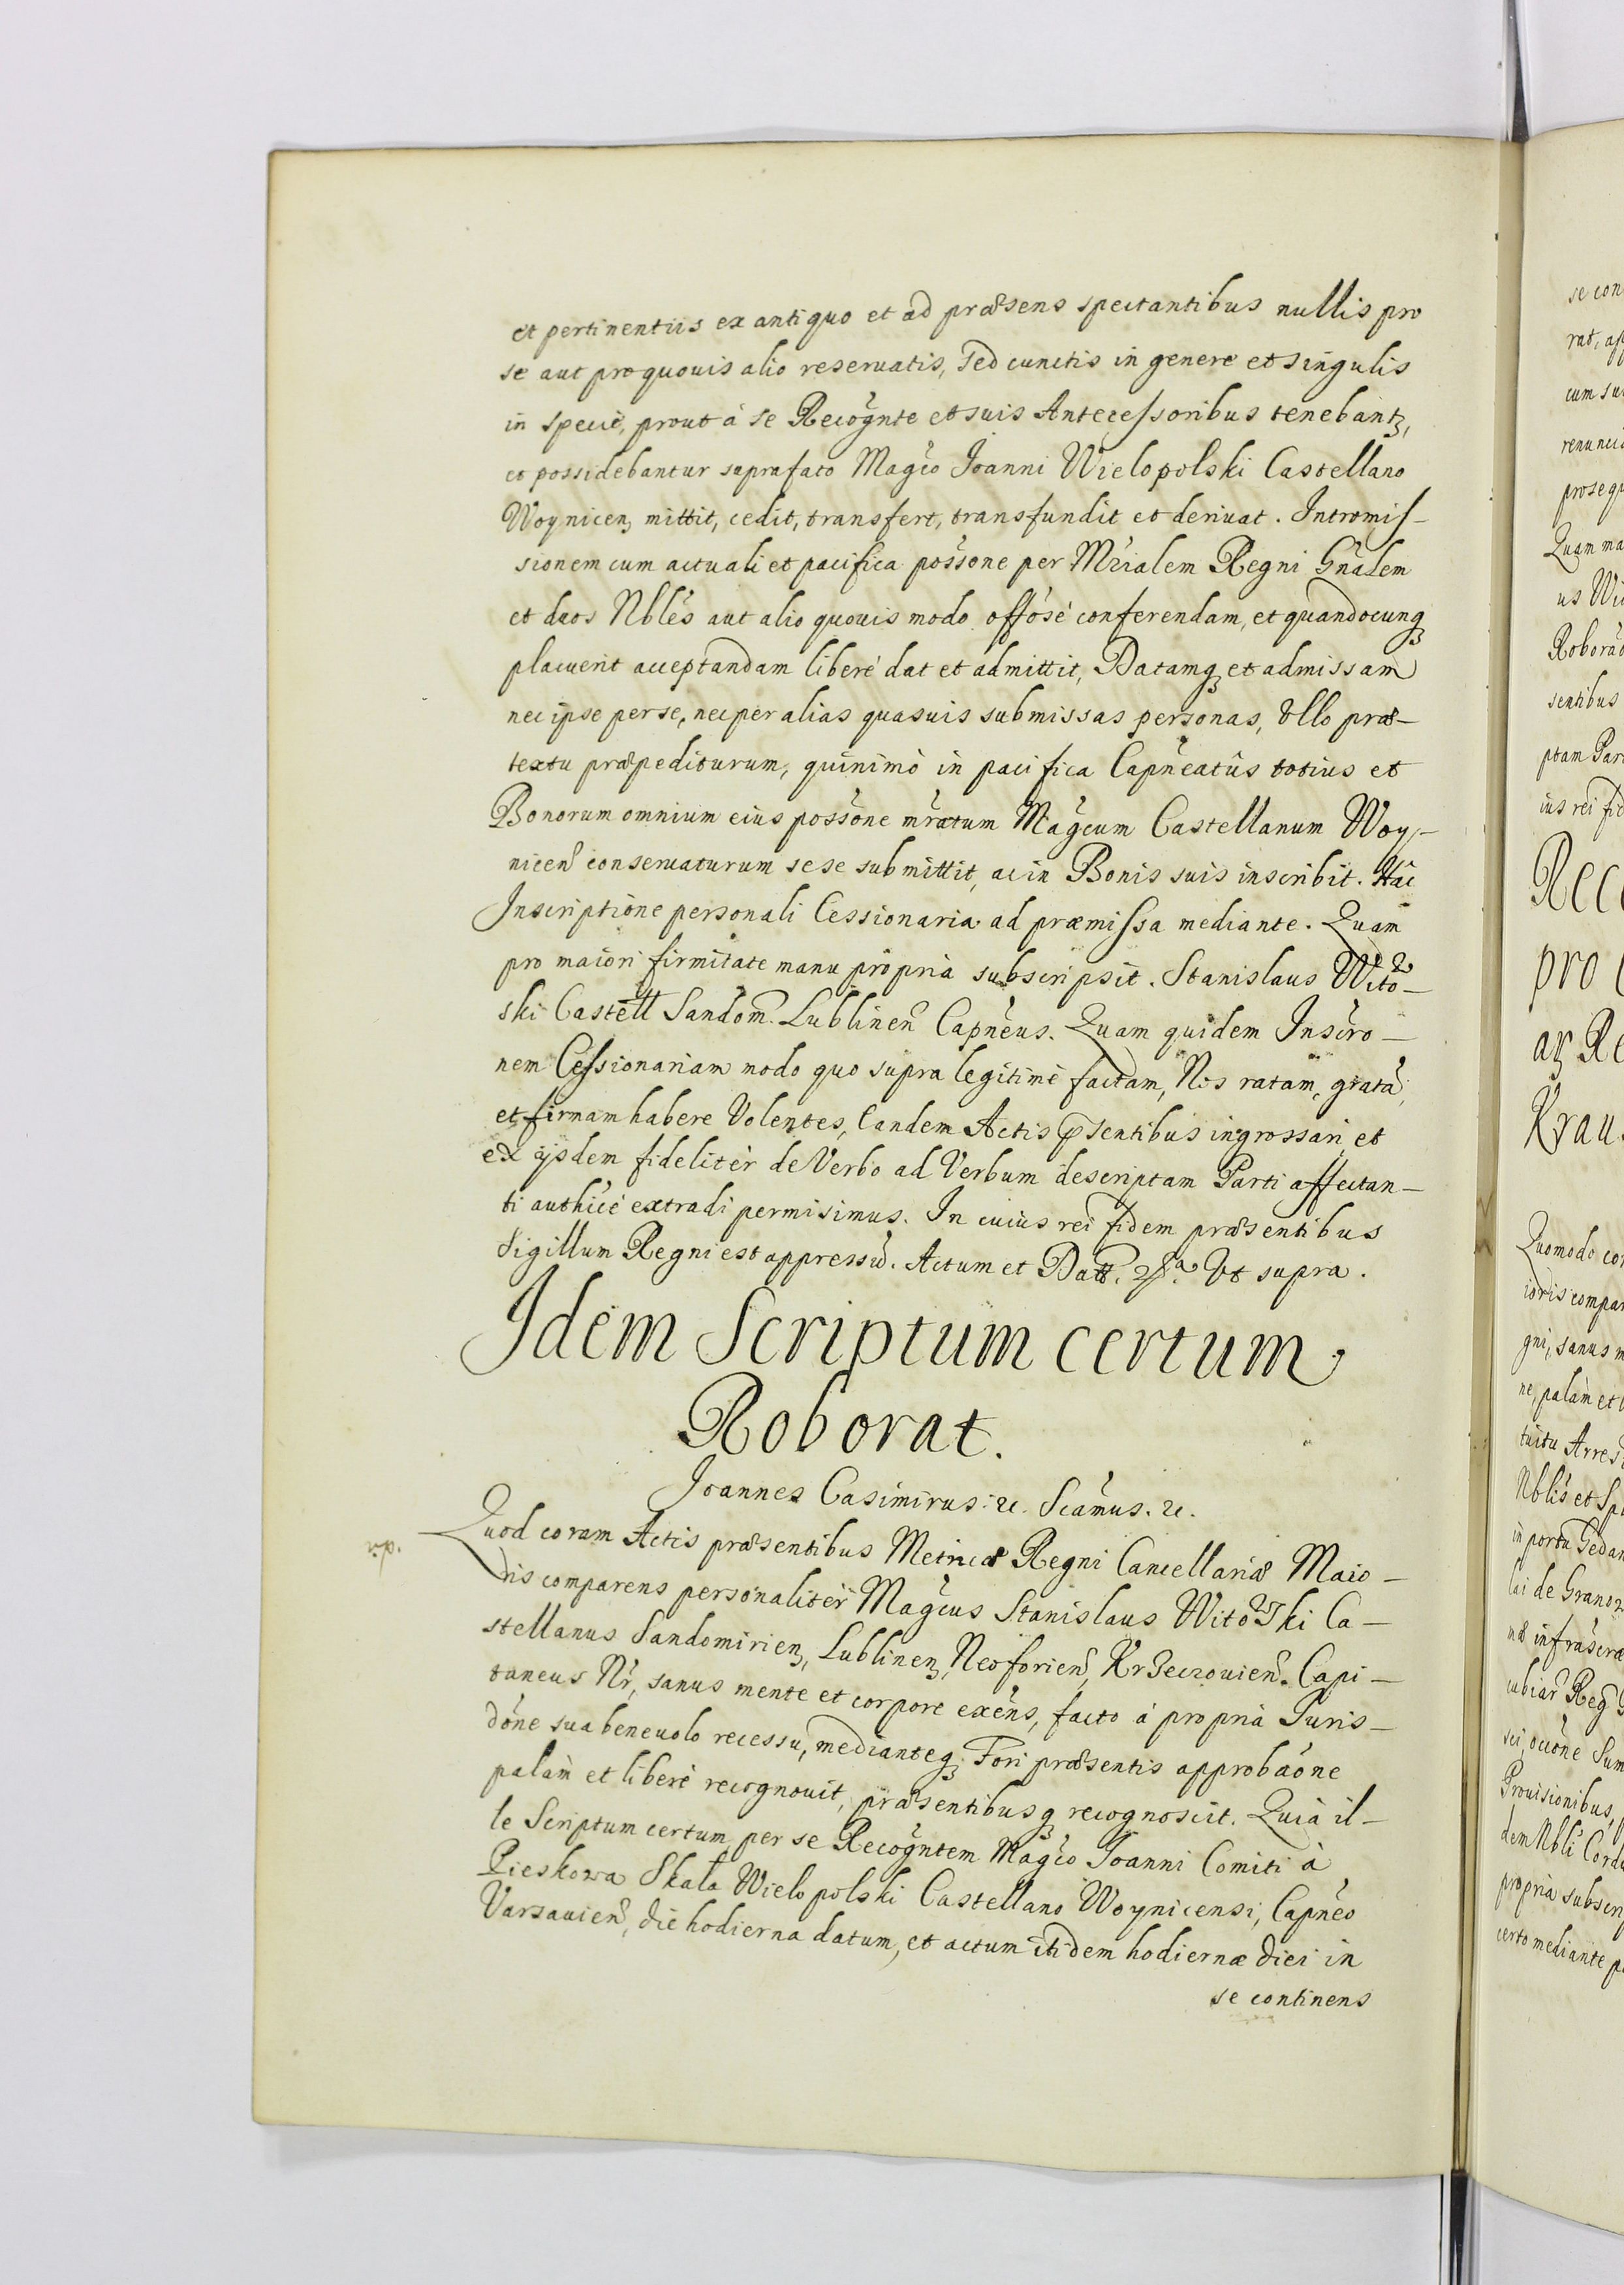 et pertinentiis ex antiquo et ad præsens spectantibus nullis pro
se aut pro quouis alio reseruatis, sed cunctis in genere et singulis
in specie, prout à se Recogñte et suis Antecessoribus tenebantꝫ,
et possidebantur suprafato Magco Joanni Wielopolski Castellano
Woynicenꝫ mittit, cedit, transfert, transfundit et deriuat. Intromis-
sionem cum actuali et pacifica possone per Mrialem Regni Gnalem
et duos Nbles aut alio quouis modo offose conferendam, et quandocunqꝫ
placuerit acceptandam liberè dat et admittit, Datamqꝫ et admissam
nec ipse per se, nec per alias quasuis submissas personas, Vllo præ-
textu præpediturum, quinimò in pacifica Capneatûs totius et
Bonorum omnium eius possone mratum Magcum Castellanum Woy-
nicen conseruaturum sese submittit, ac in Bonis suis inscribit. Hac
Inscriptione personali Cessionaria ad præmissa mediante. Quam
pro maiori firmitate manu propria subscripsit. Stanislaus Wito-
ski Castell Sandom. Lublinen Capneus. Quam quidem Inscro-
nem Cessionariam modo quo supra legitimè factam, Nos ratam, gratã,
et firmam habere Volentes, Eandem Actis pͤsentibus ingrossari et
ex ijsdem fideliter de Verbo ad Verbum descriptam Parti affectan-
ti authice extradi permisimus. In cuius rei fidem præsentibus
Sigillum Regni est appressũ. Actum et Datt. Vt supra.
Idem Scriptum certum
Roborat.
Joannes Casimirus. &c. Scamus. &c.
Quod coram Actis præsentibus Metricæ Regni Cancellariæ Maio-
ris comparens personaliter Magcus Stanislaus Witowski Ca-
stellanus Sandomirienꝫ, Lublinenꝫ, Neoforien, Krzeczouien. Capi-
taneus Nr, sanus mente et corpore exens, facto à propria Juris-
done sua beneuolo recessu, medianteqꝫ Fori præsentis approbaone
palàm et liberè recognouit, præsentibusqꝫ recognoscit. Quia il-
le Scriptum certum per se Recogntem Magco Joanni Comiti à
Pieskowa Skala Wielopolski Castellano Woynicensi, Capneo
Varsauien, die hodierna datum, et actum itidem hodiernæ diei in
se continens